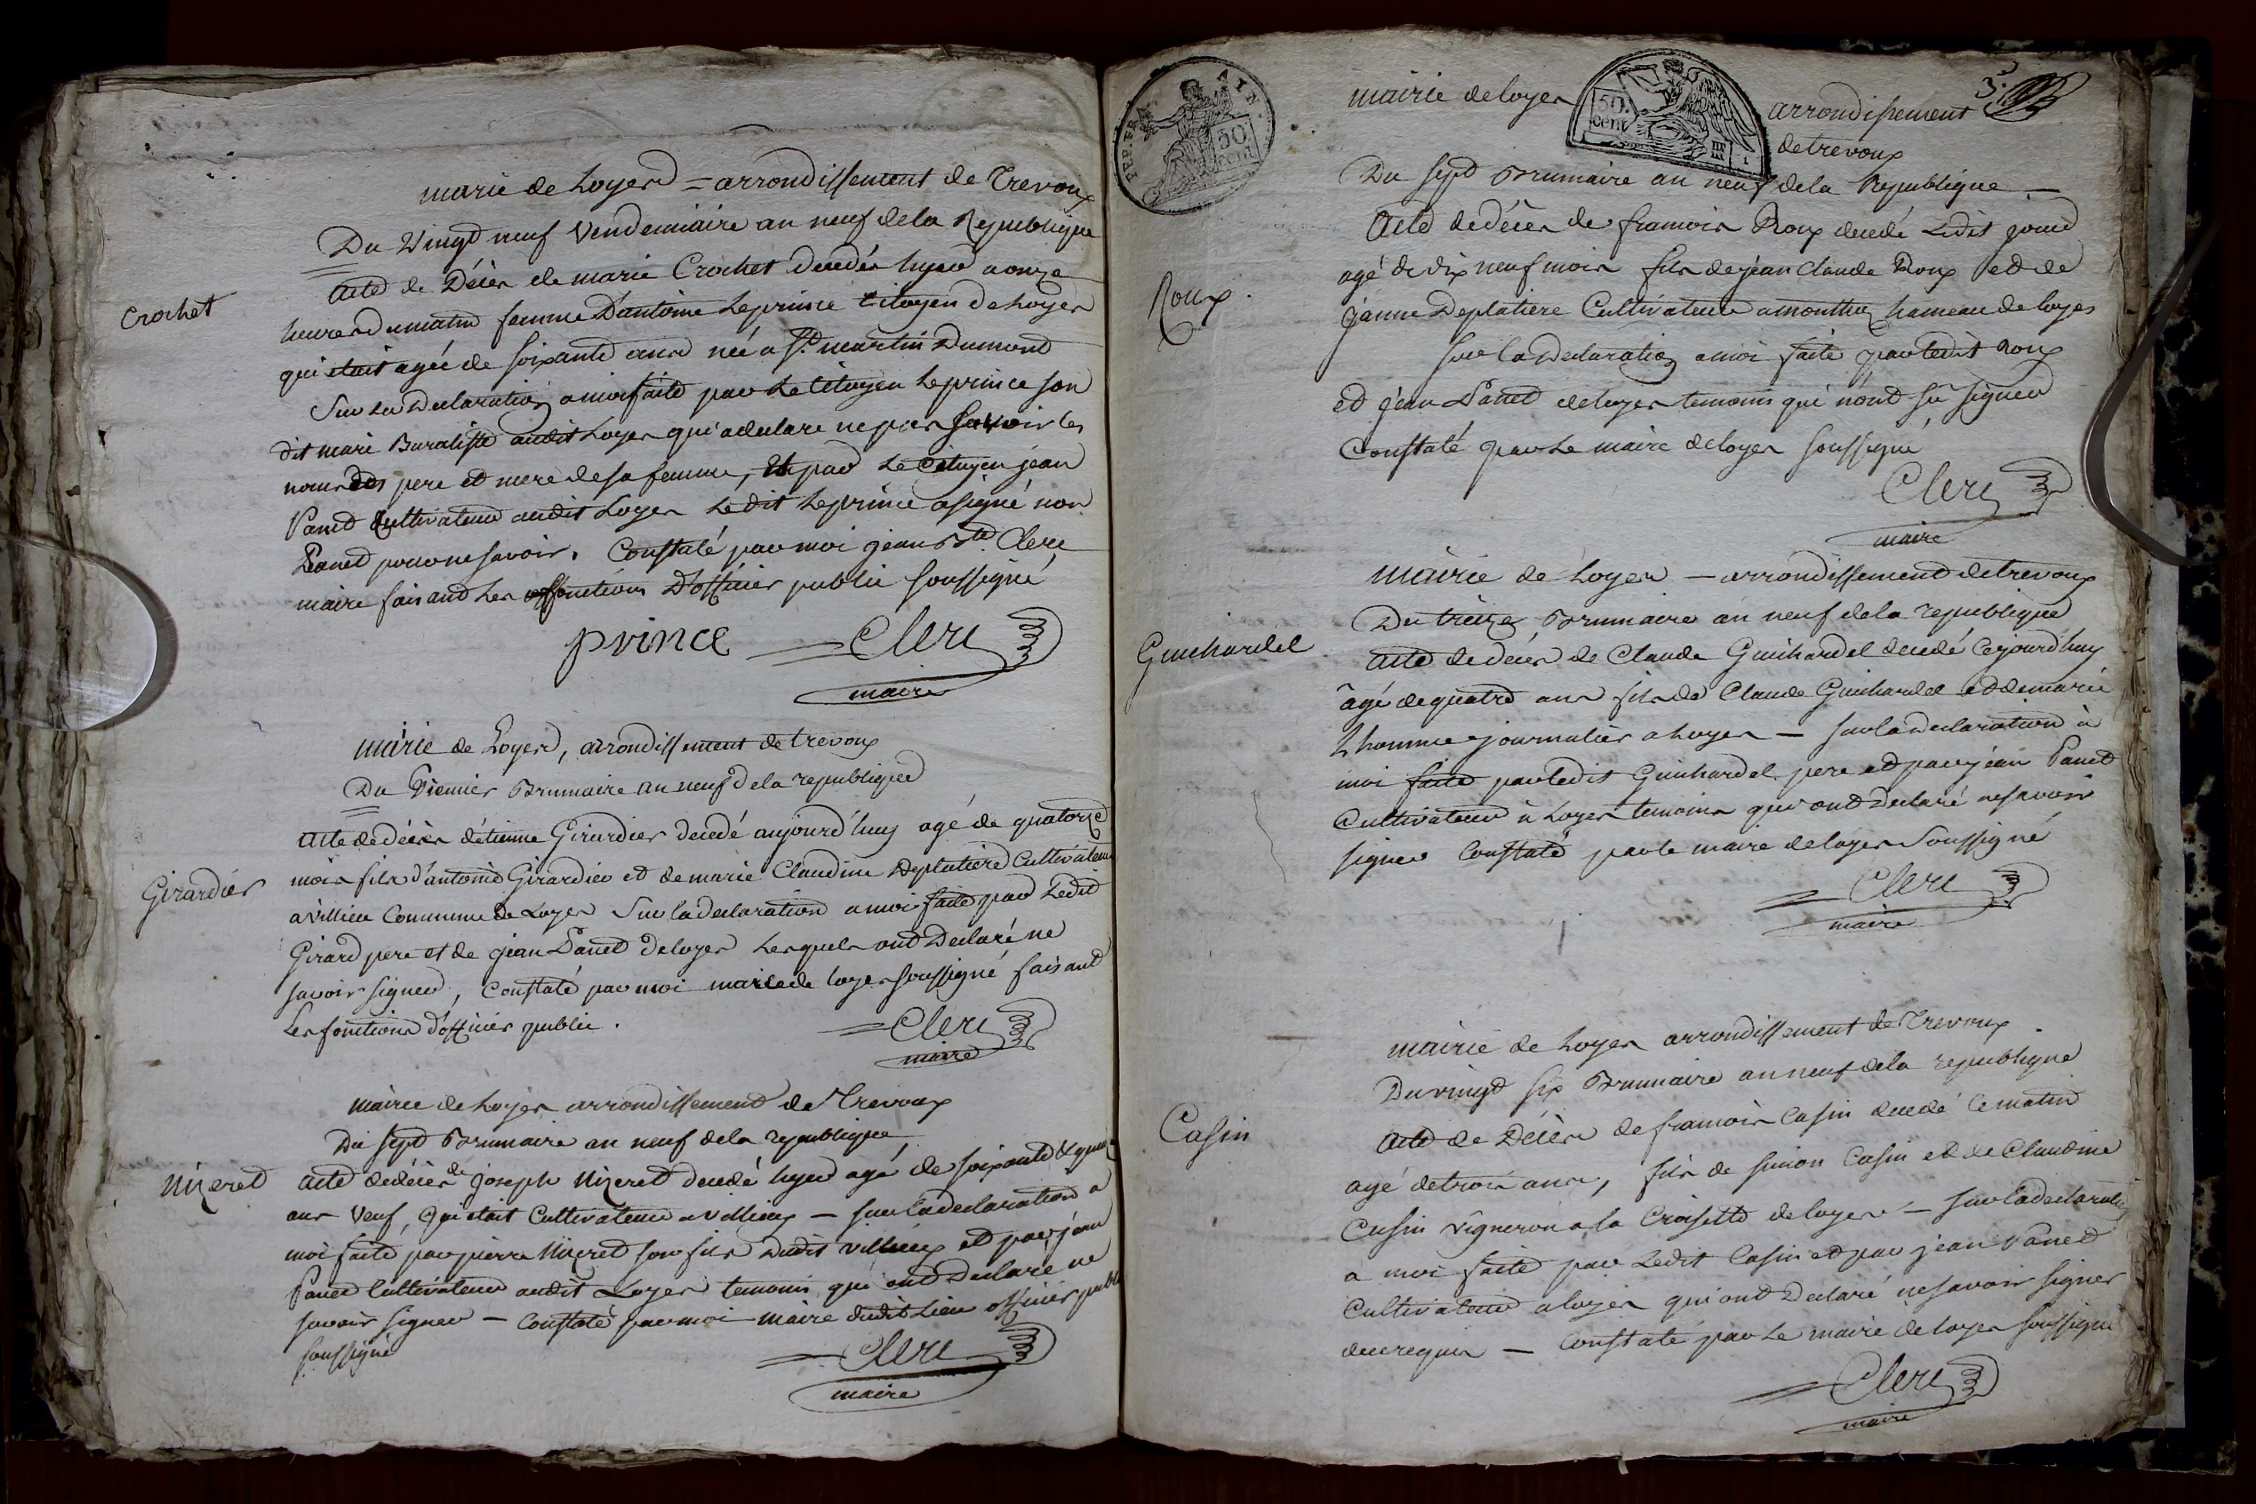 marie de Loyes = arrondissement de Trevoux
Du Vingt neuf Vendemiaire an neuf de la Republique
Crochet
acte de Décès de marie Crochet decedés hyer a onze
heures du matin femme D'antoine Leprince Citoyen de Loyes
qui etait agée de soixante ans née a St. martin Dumont
Sur la Declaration a moi faite par Le Citoyen Leprince son
dit mari Buraliste audit Loyes qui a declaré ne pas savoir les
noms des pere et mere de sa femme, Et par Le Citoyen jean
Panet Cultivateur audit Loyes Ledit Leprince a signé non
Panet pour ne savoir. Constaté par moi jean Bte. Clerc
maire faisant Les fonctions D'officier public soussigné
prince Clerc
maire
mairie de Loyes, arrondissement de trevoux
Du Premier Brumaire an neuf de la republique
Girardier
acte de décès d'etienne Girardier decedé aujourd'huy agé de quatorze
mois fils d'antoine Girardier et de marie Claudine Deplatiere Cultivateur
a villieu Commune de Loyes Sur la declaration a moi faite par Ledit
Girard pere et de jean Panet de loyes Lesquels ont Declaré ne
savoir signer, Constaté par moi maire de loyes soussigné faisant
Les fonctions d'officier public.
Clerc
maire
mairie de Loyes arrondissement de Trevoux
Du sept Brumaire an neuf de la republique
Nizeret
acte de décès de joseph Nizeret decedé hyer agé de soixante &
ans Veuf, Qui etait Cultivateur a Villieux — sur la declaration a
moi faite par pierre Nizeret son fils Dudit villieux et par jean
Panet Cultivateur audit Loyes temoins qui ont Declaré ne
savoir signer — Constaté par moi maire dudit Lieu officier public
soussigné
Clerc
maire
REP. FRA. AIN.
50 cent
mairie de loyes
50. cent.
arrondissement
de trevoux
3
Du sept Brumaire an neuf de la Republique —
Roux.
Acte de décès de francois Roux decedé Ledit jour
agé de dix neuf mois fils de jean Claude Roux et de
janne Deplatiere Cultivateur a monthoz hameau de loyes
sur la Declaration a moi faite par ledit Roux
et jean Panet de loyes temoins qui n'ont sû signer
Constaté par Le maire de loyes soussigné
Clerc
maire
Mairie de Loyes — arrondissement de trevoux
Du treize Brumaire an neuf de la republique
Guichardel
acte de décès de Claude Guichardel decedé Cejourd'huy
âgé de quatre ans fils de Claude Guichardel et de marie
Lhomme journalier a Loyes — sur la declaration à
moi faite par ledit Guichardel pere et par jean Panet
Cultivateur à Loyes temoins qui ont Declaré ne savoir
signer Constaté par le maire de loyes Soussigné
Clerc
maire
mairie de Loyes arrondissement de Trevoux
Du vingt six Brumaire an neuf de la republique
Casin
acte de Décès de francois Casin decedé Ce matin
agé de trois ans, fils de simon Casin et de Claudine
Cusin vigneron a la Croisette de loyes — sur la declaration
a moi faite par Ledit Casin et par jean Panet
Cultivateur a loyes qui ont Declaré ne savoir signer
de ce requis — Constaté par Le maire de loyes soussigné
Clerc
maire